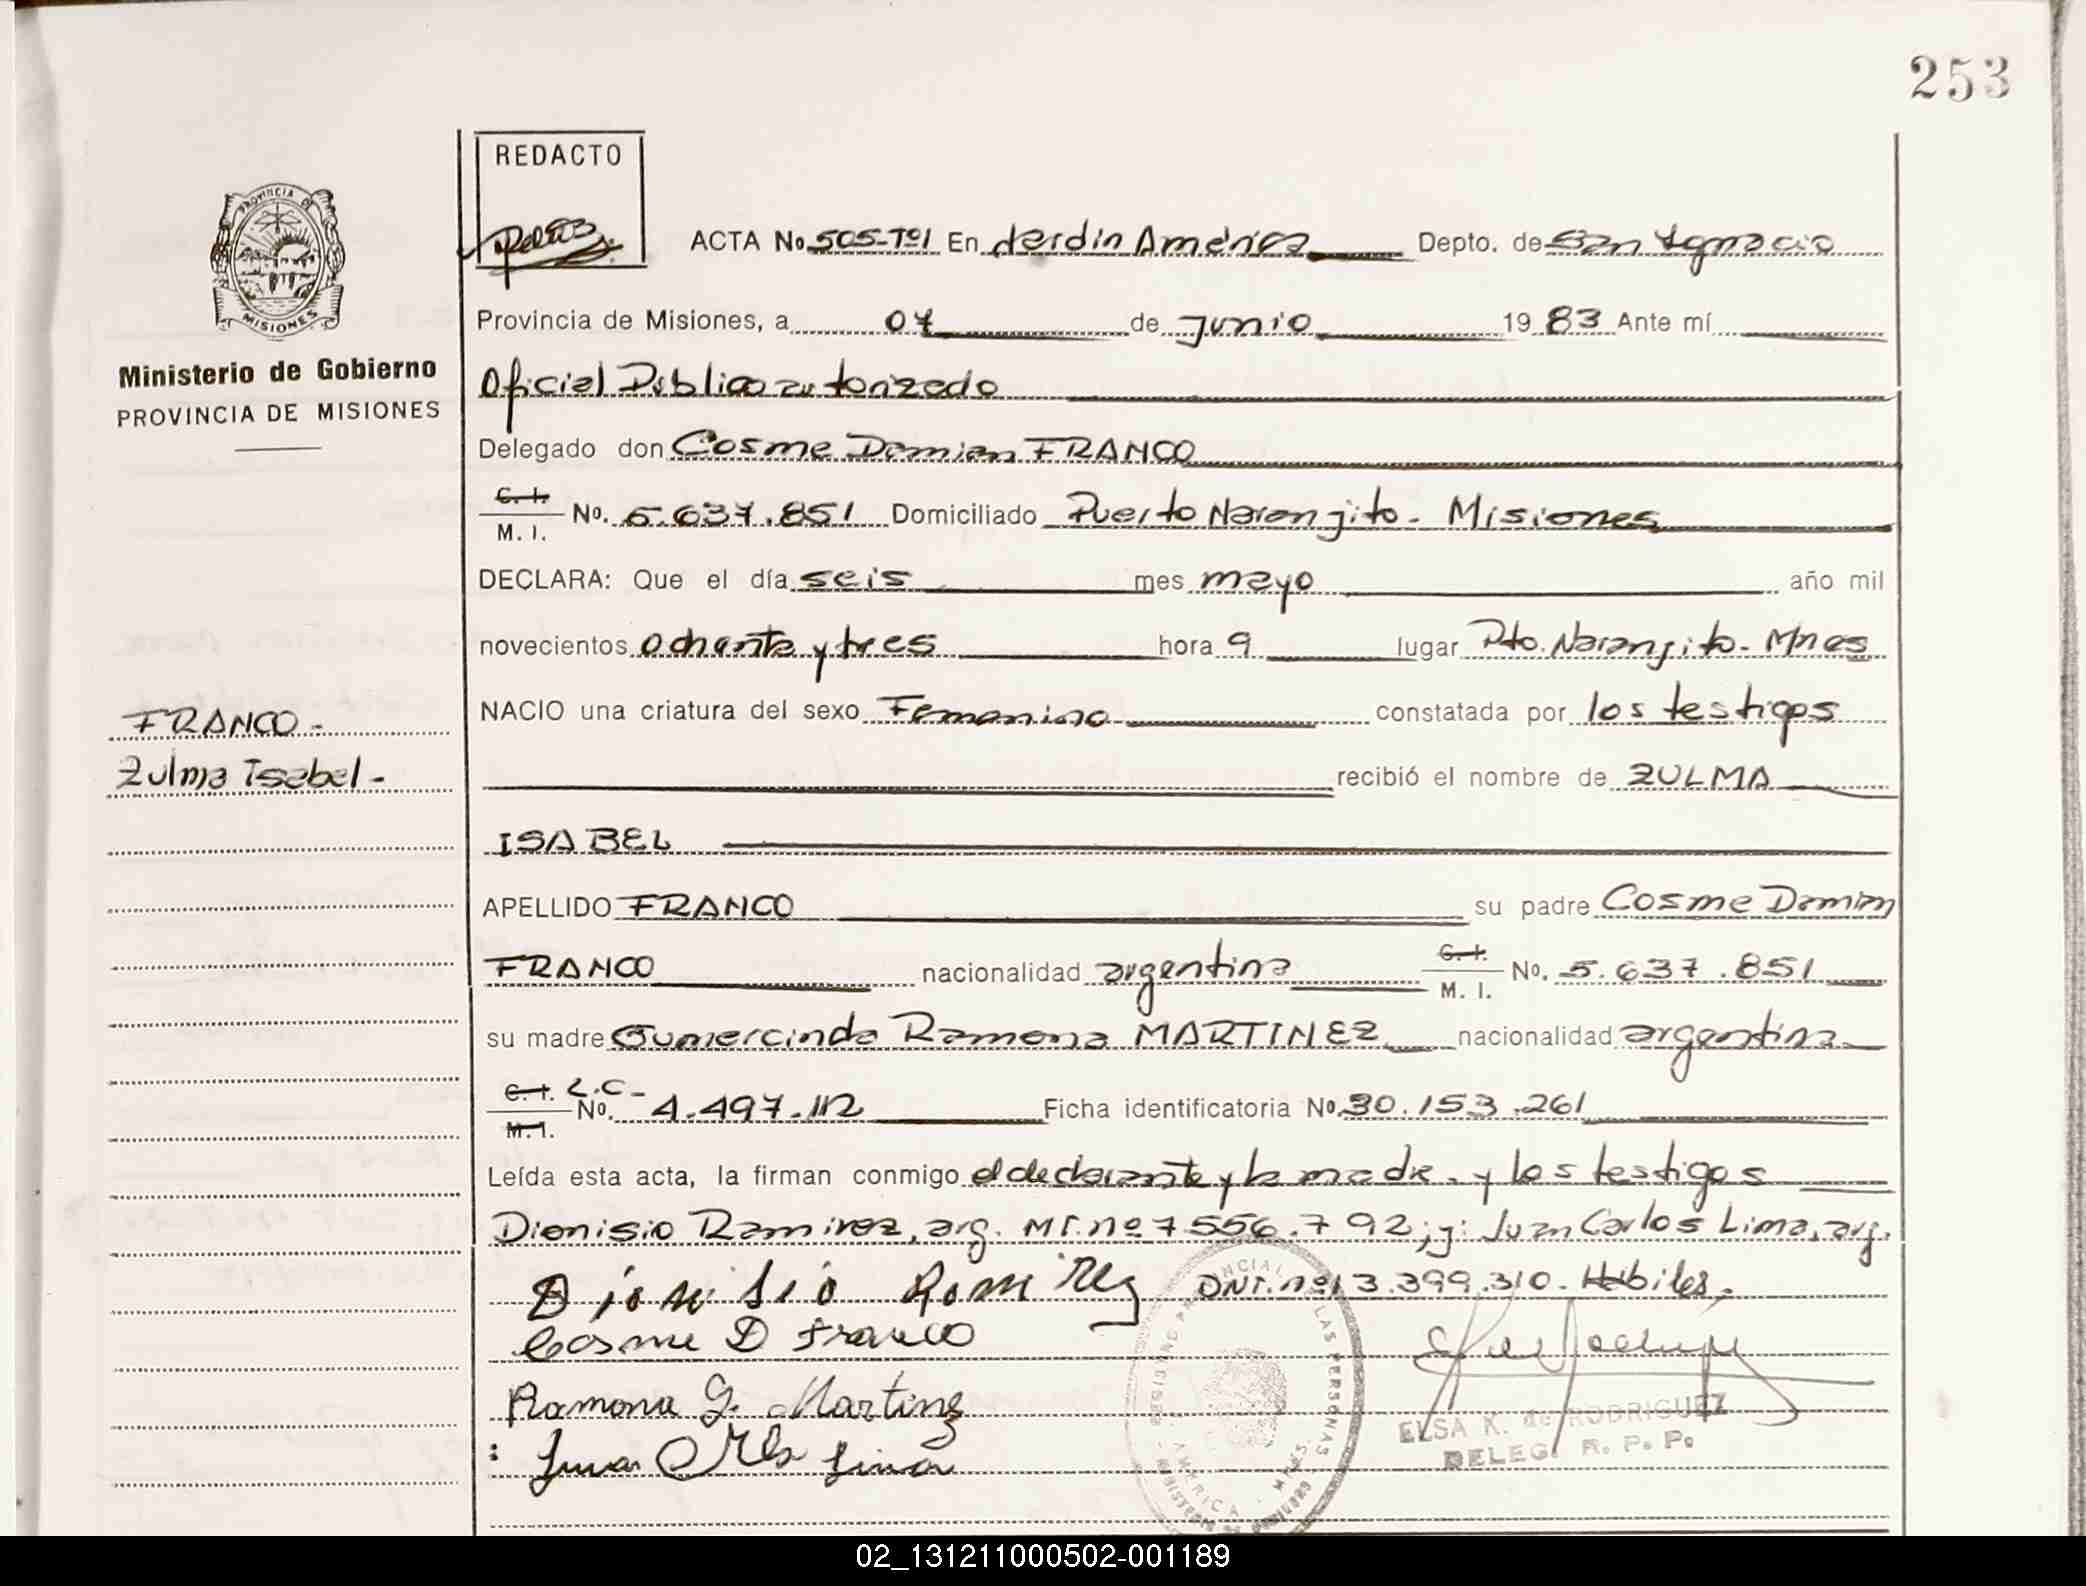 253
REDACTO
PROVINCIA DE
MISIONES
ACTA No 505-Tº1 En Jardín América Depto. de San Ignacio
Provincia de Misiones, a 07 de junio 1983 Ante mí
Ministerio de Gobierno
PROVINCIA DE MISIONES
Oficial Público autorizado
Delegado don Cosme Damian FRANCO
C. I. M. I. No. 5.637.851 Domiciliado Puerto Naranjito - Misiones
DECLARA: Que el día seis mes mayo año mil
novecientos ochenta y tres hora 9 lugar Pto. Naranjito - Mnes
NACIO una criatura del sexo Femenino constatada por los testigos
FRANCO -
Zulma Isabel -
recibió el nombre de ZULMA
ISABEL
APELLIDO FRANCO su padre Cosme Damian
FRANCO nacionalidad argentina C. I. M. I. No. 5.637.851
su madre Gumercinda Ramona MARTINEZ nacionalidad argentina
C. I. M. I. L.C- No. 4.497.112 Ficha identificatoria No 30.153.261
Leída esta acta, la firman conmigo el declarante y la madre, y los testigos
Dionisio Ramirez, arg. MI. nº 7556.792; y: Juan Carlos Lima, arg.
DNI. nº 13.399.310. Hábiles,
Dionisio Ramirez
Cosme D Franco
Ramona G. Martinez
: Juan Lima
ELSA K. de RODRIGUEZ
DELEG. R. P. P.
REGISTRO PROVINCIAL DE LAS PERSONAS
AMERICA - MNES.
02_131211000502-001189